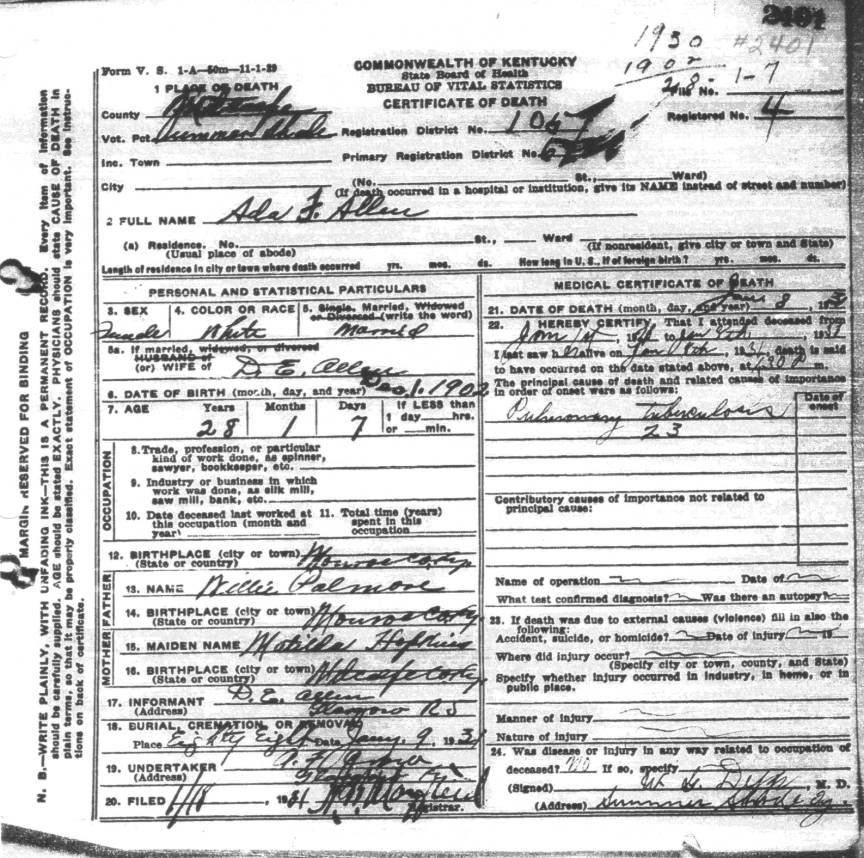 2401
1930
#2401
1902
28-1-7
Form V. S. 1-A—50m—11-1-29
COMMONWEALTH OF KENTUCKY
State Board of Health
BUREAU OF VITAL STATISTICS
CERTIFICATE OF DEATH
File No.
Registered No. 4
1 PLACE OF DEATH
County Metcalfe
Vot. Pct. Summer Shade
Registration District No. 1067
Inc. Town
Primary Registration District No.
City (No. St., Ward)
(If death occurred in a hospital or institution, give its NAME instead of street and number)
2 FULL NAME Ada F. Allen
(a) Residence. No. St., Ward
(Usual place of abode) (If nonresident, give city or town and State)
Length of residence in city or town where death occurred yrs. mos. ds. How long in U. S., if of foreign birth? yrs. mos. ds.
PERSONAL AND STATISTICAL PARTICULARS
3. SEX 4. COLOR OR RACE 5. Single, Married, Widowed
or Divorced (write the word)
Female White Married
5a. If married, widowed, or divorced
HUSBAND of
(or) WIFE of D. E. Allen
6. DATE OF BIRTH (month, day, and year) Dec. 1. 1902
7. AGE Years Months Days If LESS than
1 day hrs.
28 1 7 or min.
OCCUPATION
8. Trade, profession, or particular
kind of work done, as spinner,
sawyer, bookkeeper, etc.
9. Industry or business in which
work was done, as silk mill,
saw mill, bank, etc.
10. Date deceased last worked at 11. Total time (years)
this occupation (month and spent in this
year) occupation
12. BIRTHPLACE (city or town) Monroe Co Ky
(State or country)
FATHER
13. NAME Willie Palmore
14. BIRTHPLACE (city or town) Monroe Co Ky
(State or country)
MOTHER
15. MAIDEN NAME Matilda Hopkins
16. BIRTHPLACE (city or town) Metcalfe Co Ky
(State or country)
17. INFORMANT D. E. Allen
(Address) Glasgow R5
18. BURIAL, CREMATION, OR REMOVAL
Place Eighty Eight Date Jany. 9. 1931
19. UNDERTAKER
(Address)
20. FILED 1/18, 1931
Registrar.
MEDICAL CERTIFICATE OF DEATH
21. DATE OF DEATH (month, day, and year) Jan 8 193
22. I HEREBY CERTIFY, That I attended deceased from
Jan 1st, 1931 to Jan 8th, 1931
I last saw her alive on Jan 8th, 1931, death is said
to have occurred on the date stated above, at m.
The principal cause of death and related causes of importance
in order of onset were as follows:
Date of
onset
Pulmonary tuberculosis
23
Contributory causes of importance not related to
principal cause:
Name of operation Date of
What test confirmed diagnosis? Was there an autopsy?
23. If death was due to external causes (violence) fill in also the
following:
Accident, suicide, or homicide? Date of injury 19
Where did injury occur?
(Specify city or town, county, and State)
Specify whether injury occurred in industry, in home, or in
public place.
Manner of injury
Nature of injury
24. Was disease or injury in any way related to occupation of
deceased? no If so, specify
(Signed) M. D.
(Address) Summer Shade Ky.
MARGIN RESERVED FOR BINDING
N. B.—WRITE PLAINLY, WITH UNFADING INK—THIS IS A PERMANENT RECORD. Every item of information
should be carefully supplied. AGE should be stated EXACTLY. PHYSICIANS should state CAUSE OF DEATH in
plain terms, so that it may be properly classified. Exact statement of OCCUPATION is very important. See instruc-
tions on back of certificate.